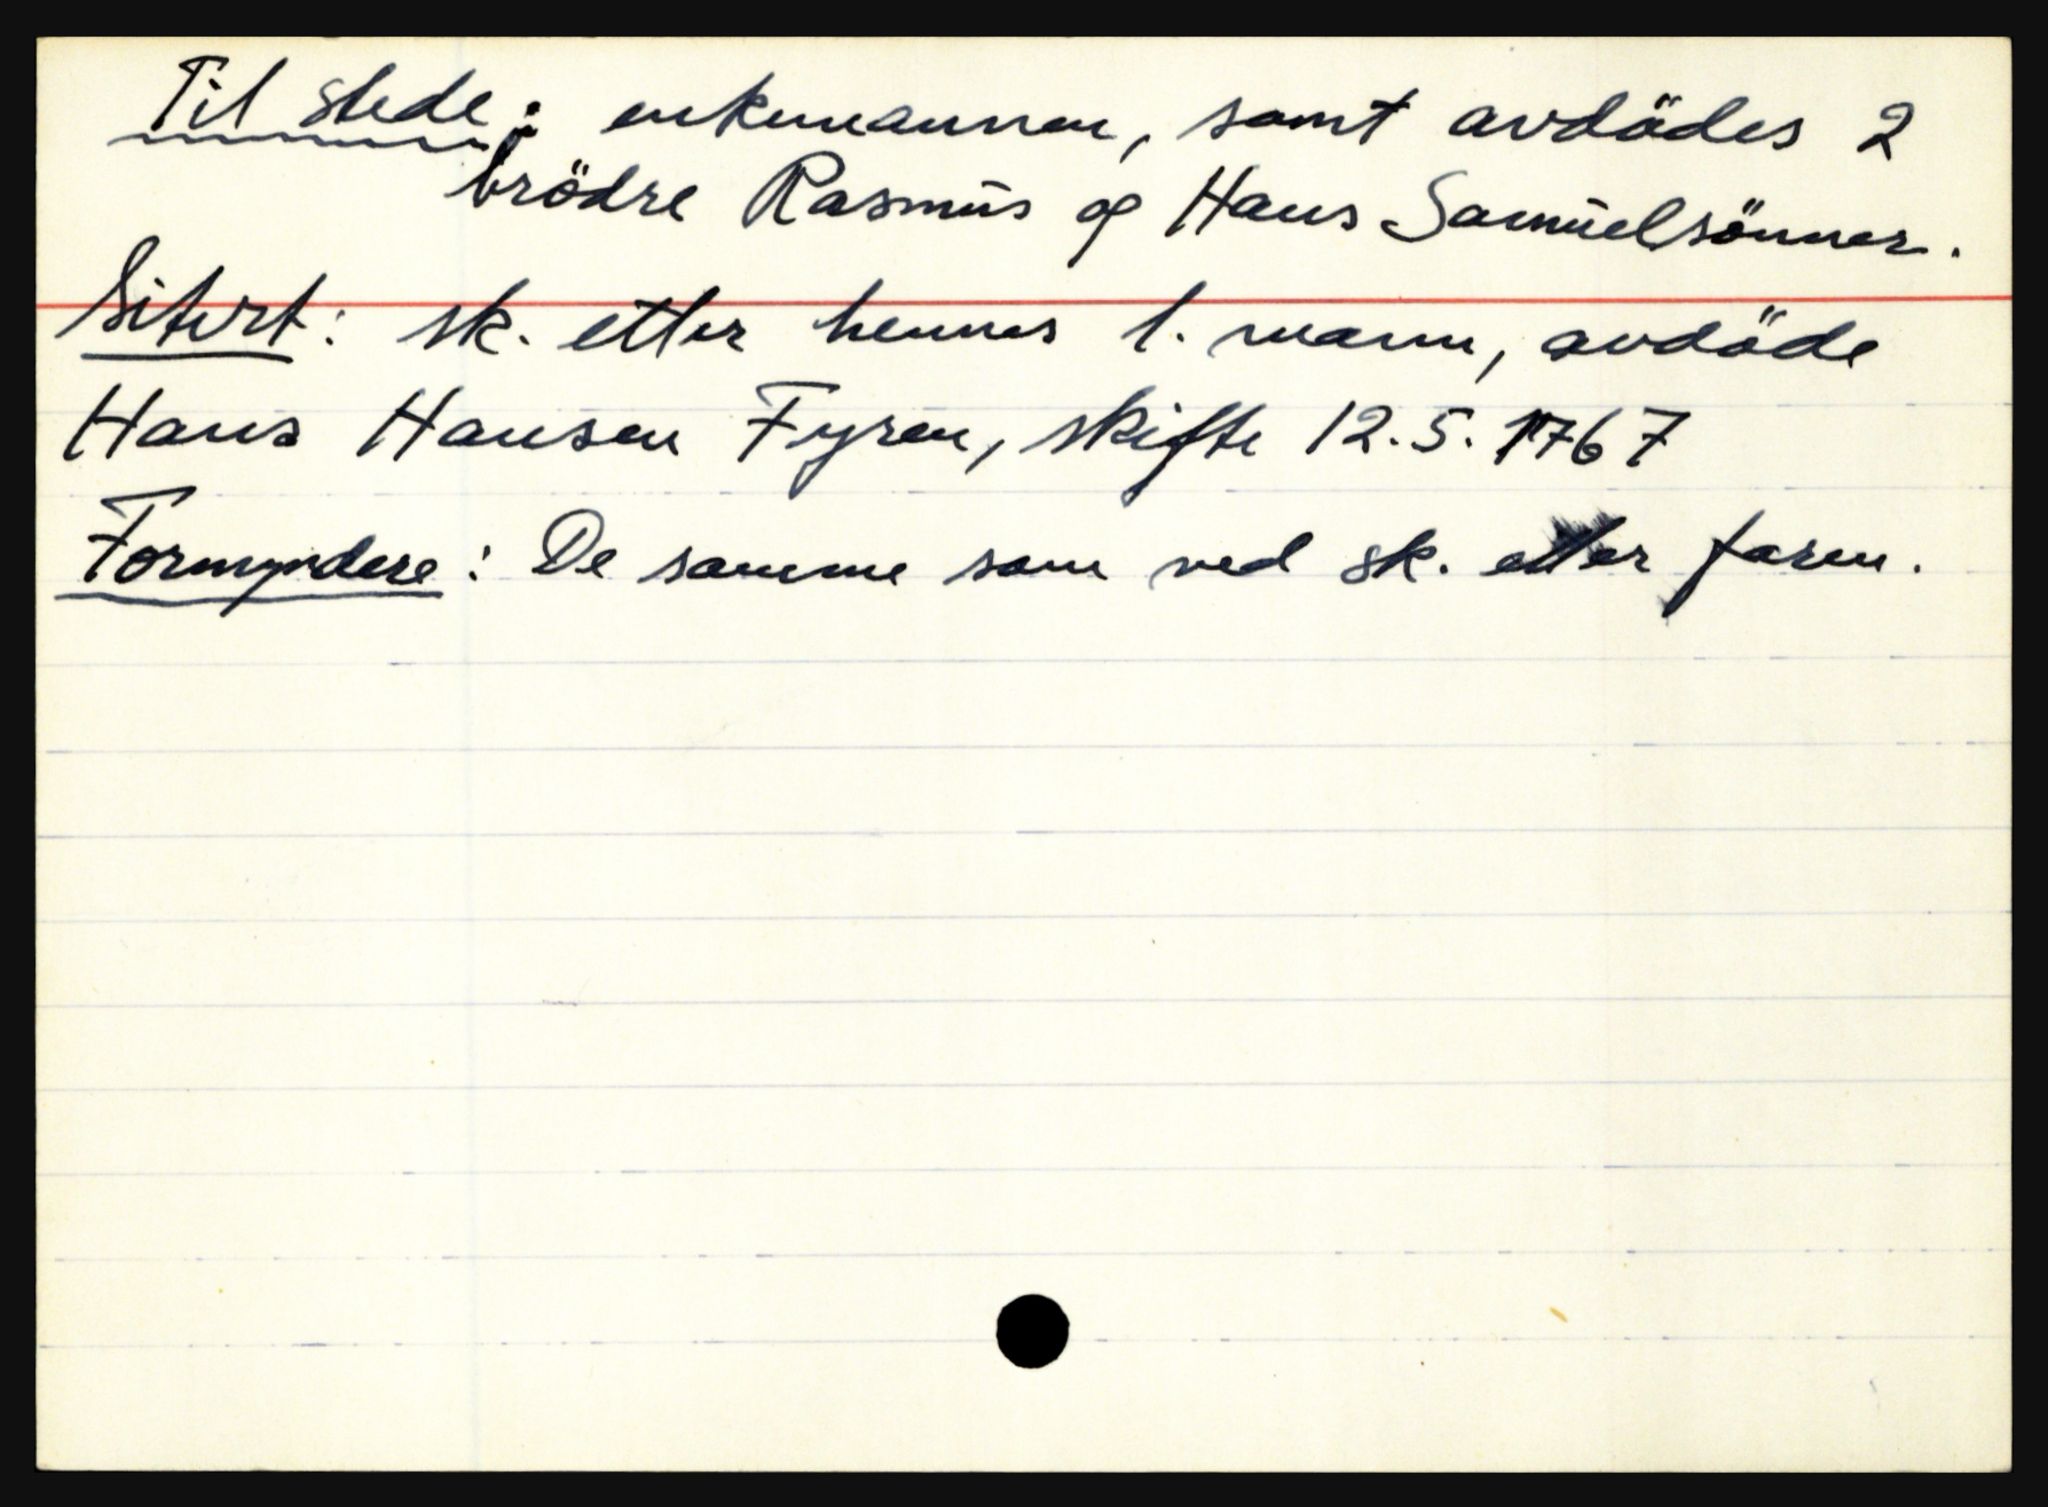 Til stede: enkemannen, samt avdödes 2
brödre Rasmus og Hans Samuelsönner.
Sitert: sk. etter hennes 1. mann, avdöde
Hans Hansen Fyren, skifte 12.5.1767
Formyndere: De samme som ved sk. etter faren.